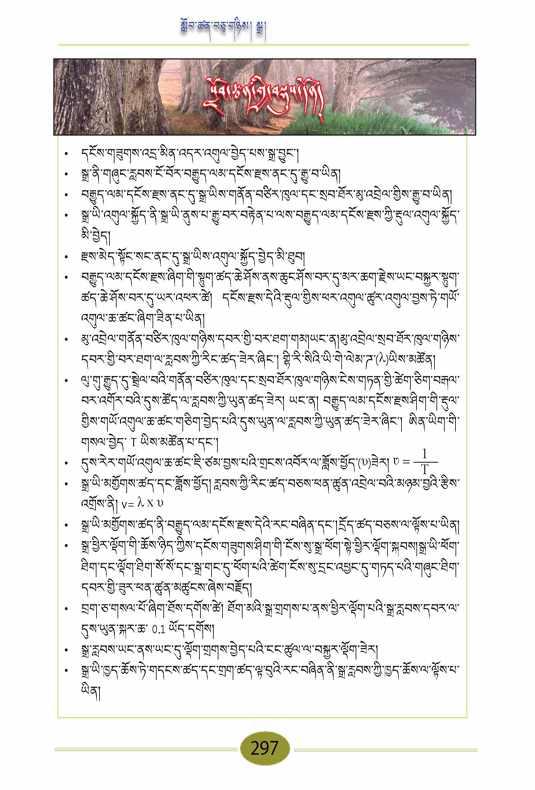 སློབ་ཚན་བཅུ་གཉིས། སྒྲ།
• དངོས་གཟུགས་འདྲ་མིན་འདར་འགུལ་བྱེད་པས་སྒྲ་བྱུང་།
• སྒྲ་ནི་གཞུང་རླབས་ངོ་བོར་བརྒྱུད་ལམ་དངོས་རྫས་ནང་དུ་རྒྱུ་བ་ཡིན།
• བརྒྱུད་ལམ་དངོས་རྫས་ནང་དུ་སྒྲ་ཡིས་གནོན་བཙིར་ཁུལ་དང་སྲབ་ཐོར་མུ་འབྲེལ་གྱིས་རྒྱུ་བ་ཡི་ན།
• སྒྲ་ཡི་འགུལ་སྐྱོད་ནི་སྒྲ་ཡི་ནུས་པ་རྒྱུ་བར་བརྟེན་པ་ལས་བརྒྱུད་ལམ་དངོས་རྫས་ཀྱི་རྡུལ་འགུལ་སྐྱོད་
མི་བྱེད།
• རྫས་མེད་སྟོང་སང་ནང་དུ་སྒྲ་ཡིས་འགུལ་སྐྱོད་བྱེད་མི་ཐུབ།
• བརྒྱུད་ལམ་དངོས་རྫས་ཞིག་གི་སྟུག་ཚད་ཆེ་ཤོས་ནས་ཆུང་ཤོས་བར་དུ་མར་ཆག་རྗེས་ཡང་བསྐྱར་སྟུག་
ཚད་ཆེ་ཤོས་བར་དུ་ཡར་འཕར་ཚེ། དངོས་རྫས་དེའི་རྡུལ་གྱིས་ཕར་འགུལ་ཚུར་འགུལ་བྱས་ཏེ་གཡོ་
འགུལ་ཆ་ཚང་ཞིག་ཟིན་པ་ཡིན།
• མུ་འབྲེལ་གནོན་བཙིར་ཁུལ་གཉིས་དབར་གྱི་བར་ཐག་གམ།ཡང་ན།མུ་འབྲེལ་སྲབ་ཐོར་ཁུལ་གཉིས་
དབར་གྱི་བར་ཐག་ལ་རླབས་ཀྱི་རིང་ཚད་ཟེར་ཞིང་། གྷི་རི་སིའི་ཡི་གེ་ལེམ་ཌ་(λ)ཡིས་མཚོན།
• ལུ་གུ་རྒྱུད་དུ་སྦྲེལ་བའི་གནོན་བཙིར་ཁུལ་དང་སྲབ་ཐོར་ཁུལ་གཉིས་ངེས་གཏན་གྱི་ཚེག་ཅིག་བརྒལ་
བར་འགོར་བའི་དུས་ཚོད་ལ་རླབས་ཀྱི་ཡུན་ཚད་ཟེར། ཡང་ན། བརྒྱུད་ལམ་དངོས་རྫས་ཤིག་གི་རྡུལ་
གྱིས་གཡོ་འགུལ་ཆ་ཚང་གཅིག་བྱེད་པའི་དུས་ཡུན་ལ་རླབས་ཀྱི་ཡུན་ཚད་ཟེར་ཞིང་། ཨིན་ཡིག་གི་
གསལ་བྱེད་ T ཡིས་མཚོན་པ་དང་།
• དུས་རེར་གཡོ་འགུལ་ཆ་ཚང་ཇི་ཙམ་བྱས་པའི་གྲངས་འབོར་ལ་ཟློས་ཕྱོད་(υ)ཟེར། υ = 1/T
• སྒྲ་ཡི་མགྱོགས་ཚད་དང་ཟློས་ཕྱོད། རླབས་ཀྱི་རིང་ཚད་བཅས་ཕན་ཚུན་འབྲེལ་བའི་མཉམ་བྱའི་རྩིས་
འགྲོས་ནི། v= λ x υ
• སྒྲ་ཡི་མགྱོགས་ཚད་ནི་བརྒྱུད་ལམ་དངོས་རྫས་དེའི་རང་བཞིན་དང་།དྲོད་ཚད་བཅས་ལ་ལྟོས་པ་ཡིན།
• སྒྲ་ཕྱིར་ལྡོག་གི་ཆོས་ཉིད་ཀྱིས་དངོས་གཟུགས་ཤིག་གི་ངོས་སུ་སྒྲ་ཕོག་སྟེ་ཕྱིར་ལྡོག་སྐབས།སྒྲ་ཡི་ཕོག་
ཐིག་དང་ལྡོག་ཐིག་སོ་སོ་དང་སྒྲ་གང་དུ་ཕོག་པའི་ཚེག་ངོས་སུ་དྲང་འཕྱང་དུ་གཏད་པའི་གཞུང་ཐིག་
དབར་གྱི་ཟུར་ཕན་ཚུན་མཚུངས་ཞེས་བརྗོད།
• བྲག་ཅ་གསལ་པོ་ཞིག་ཐོས་དགོས་ཚེ། ཐོག་མའི་སྒྲ་གྲགས་པ་ནས་ཕྱིར་ལྡོག་པའི་སྒྲ་རླབས་དབར་ལ་
དུས་ཡུན་སྐར་ཆ་ 0.1 ཡོད་དགོས།
• སྒྲ་རླབས་ཡང་ནས་ཡང་དུ་ལྡོག་གྲགས་བྱེད་པའི་ངང་ཚུལ་ལ་བསྐྱར་ལྡོག་ཟེར།
• སྒྲ་ཡི་ཁྱད་ཆོས་ཏེ་གདངས་ཚད་དང་གྲག་ཚད་ལྟ་བུའི་རང་བཞིན་ནི་སྒྲ་རླབས་ཀྱི་ཁྱད་ཆོས་ལ་ལྟོས་པ་
ཡིན།
297